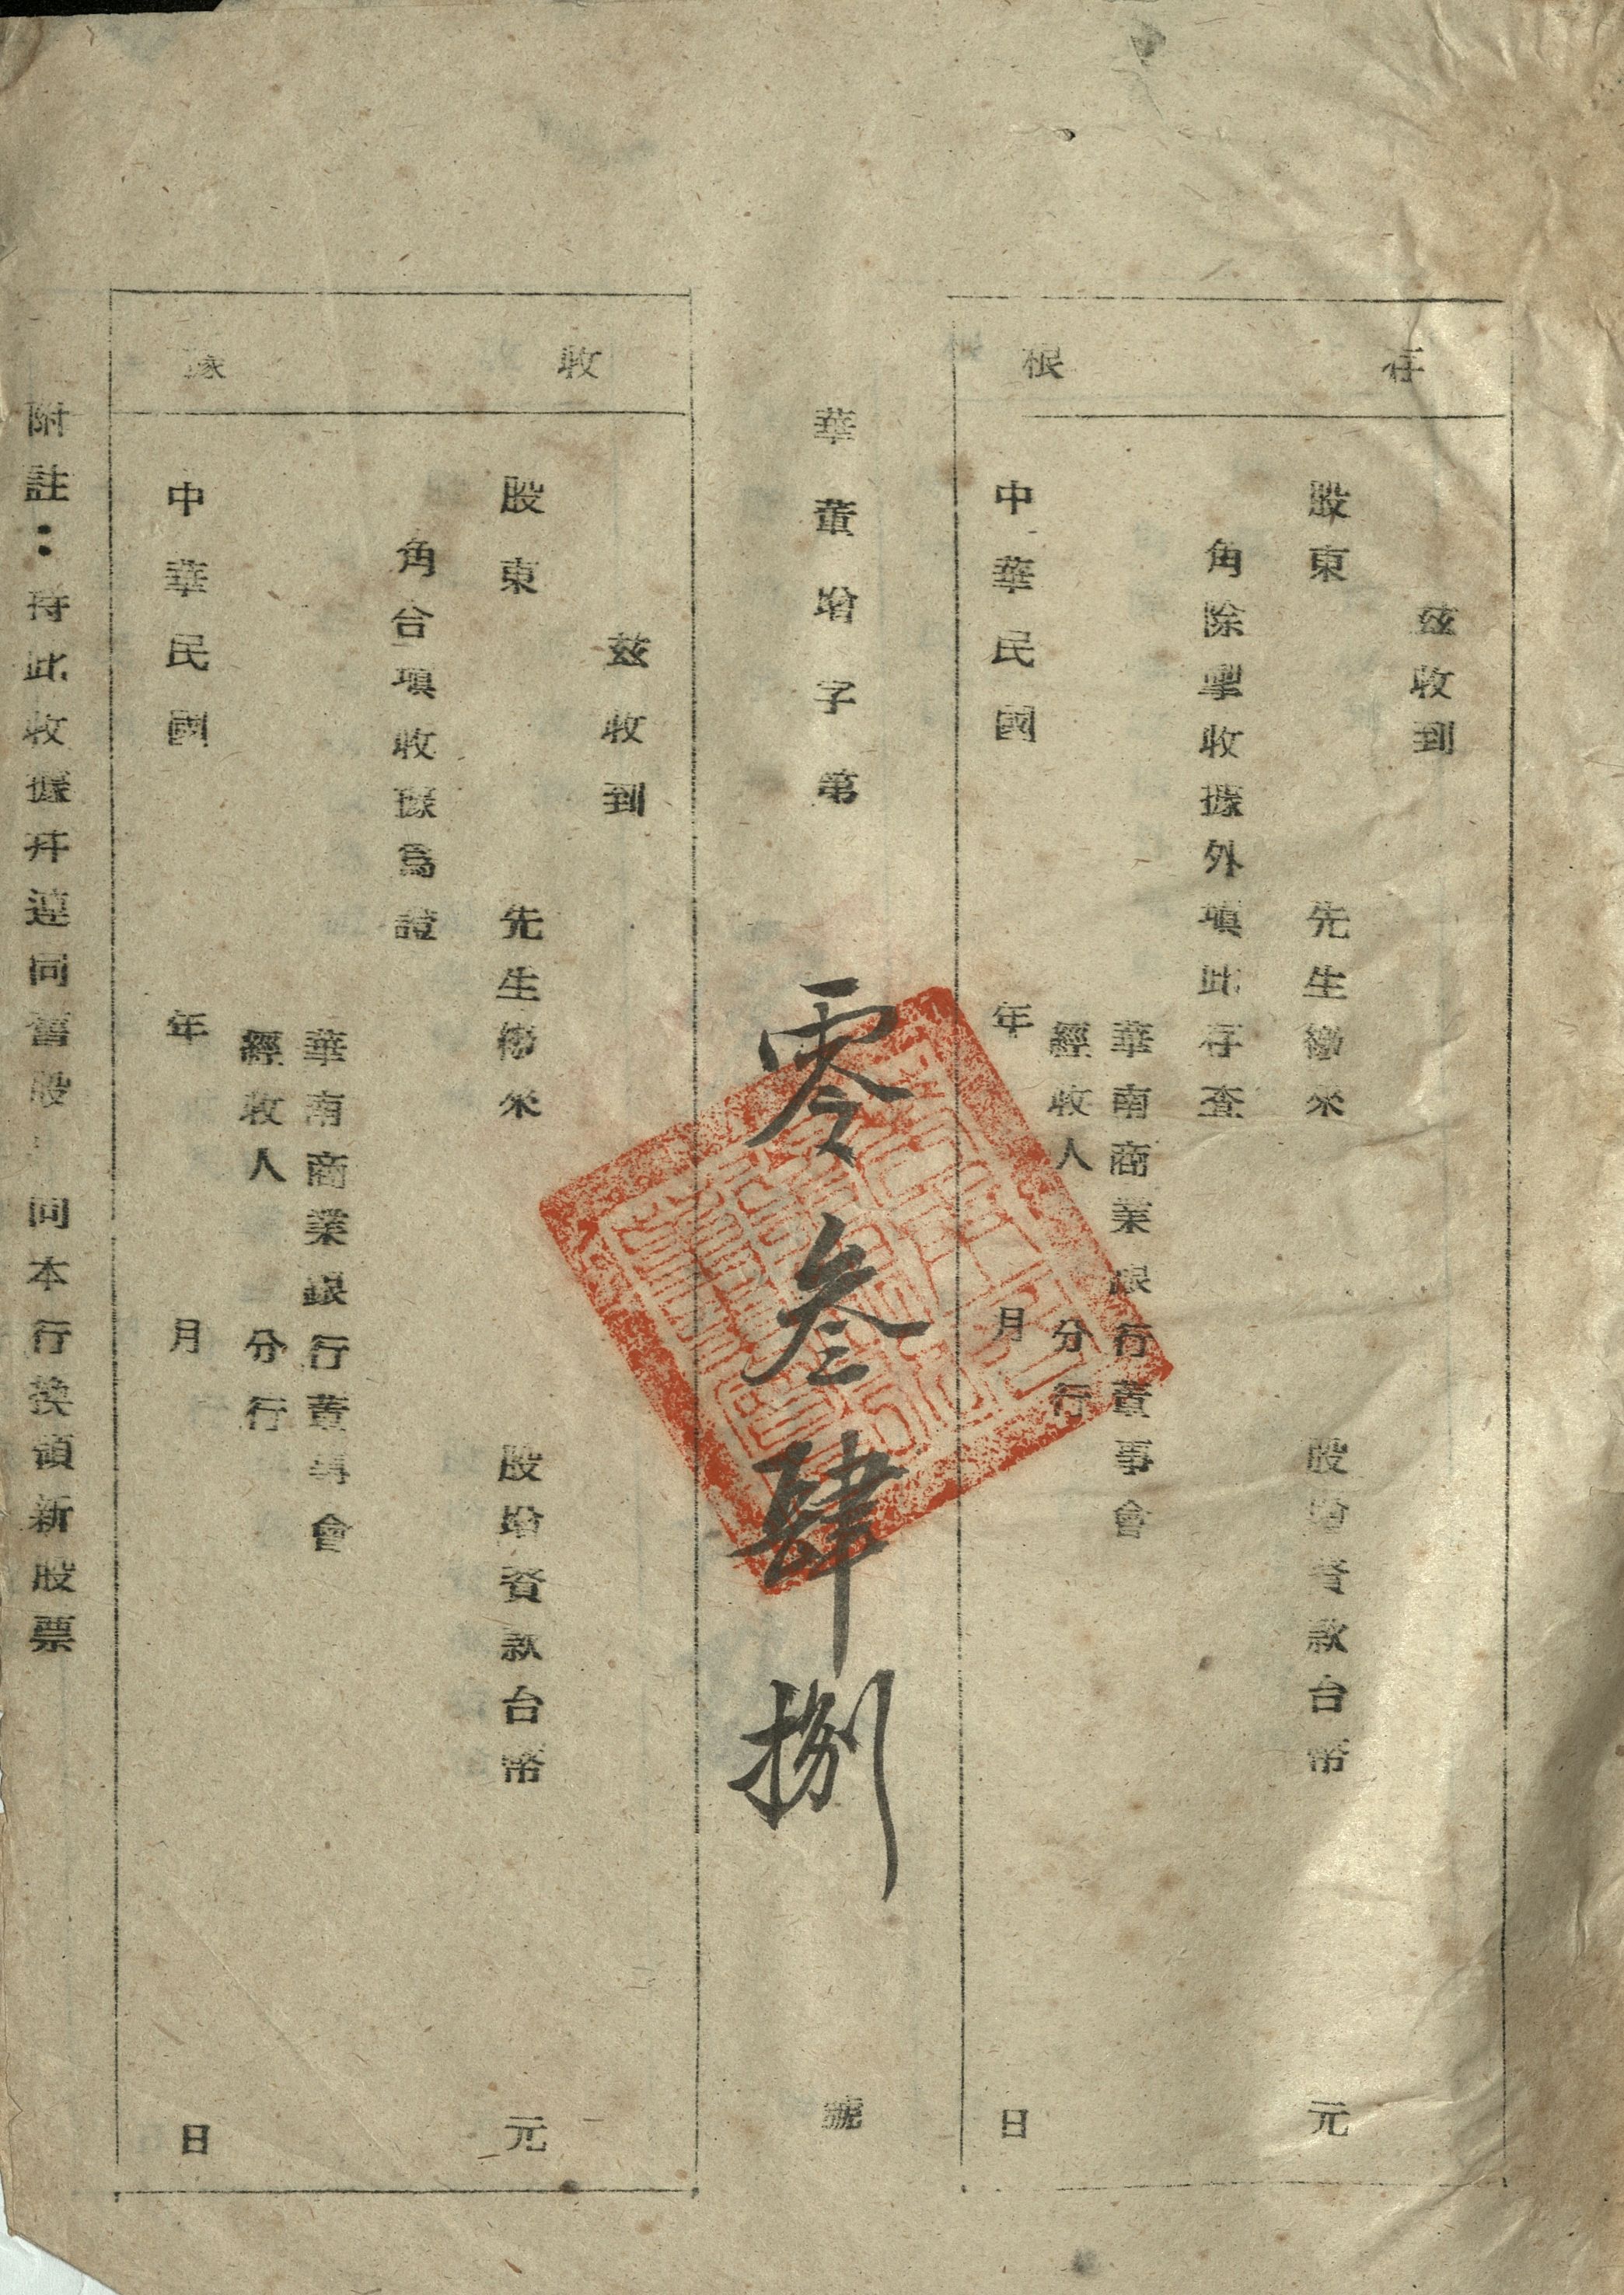 存根
茲收到
股東 先生繳來 股增資款台幣 元
角除掣收據外填此存查
華南商業銀行董事會
經收人 分行
中華民國 年 月 日
華董增字第零叁肆捌號
收據
茲收到
股東 先生繳來 股增資款台幣 元
角合填收據為證
華南商業銀行董事會
經收人 分行
中華民國 年 月 日
附註：持此收據幷連同舊股 向本行換領新股票